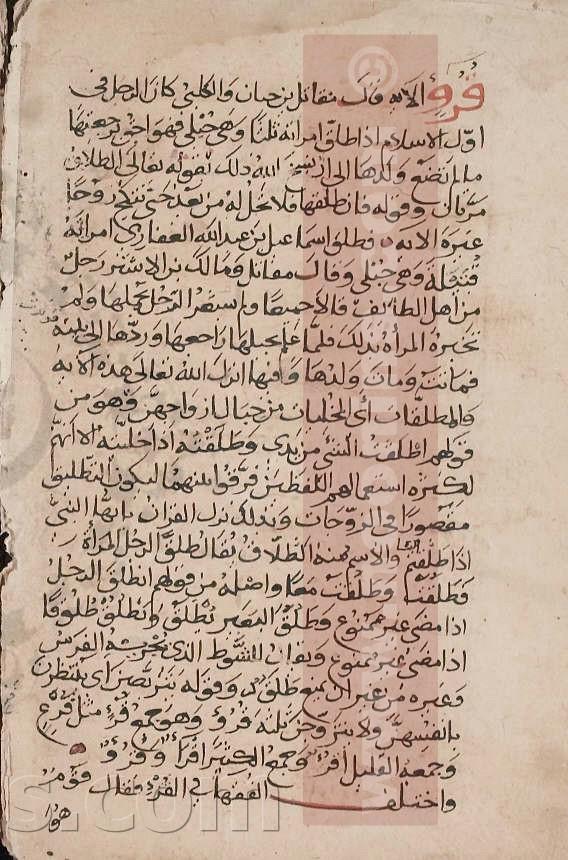 قروء الايه قال مقاتل بن حيان والكلبي كان الرجل في
اول الاسلام اذا طلق امراته ثلثا وهي حبلى فهو احق برجعتها
ما لم تضع ولدها الى ان نسخ الله ذلك بقوله تعالى الطلاق
مرتان وقوله فان طلقها فلا تحل له من بعد حتى تنكح زوجا
غيره الايه فطلق اسماعيل بن عبد الله الغفاري امراته
قتيلة وهي حبلى وقال مقاتل ومالك بن الاشتر رجل
من اهل الطائف قالا جميعا ولم يشعر الرجل بحملها ولم
تخبره المرأة بذلك فلما علم بحبلها راجعها وردها الى بيته
فماتت ومات ولدها وفيها انزل الله تعالى هذه الايه
والمطلقات أي المخليات من حبال ازواجهن وهو من
قولهم اطلقت الشئ من يدى وطلقته اذا خليته الا انهم
لكثرة استعمالهم اللفظتين فرقوا بينهما ليكون التطليق
مقصورا في الزوجات وبذلك نزل القرآن يا ايها النبي
اذا طلقتم النسا والاسم منه الطلاق يقال طلق الرجل المرأة
فطلقت وطلقت معا واصله من قولهم انطلق الرجل
اذا مضى غير ممنوع وطلق البعير يطلق وانطلق طلوقا
اذا مضى غير ممنوع ويقال للشوط الذى يجريه الفرس
وغيره من غير ان يمنع طلق وقوله يتربصن أي ينتظرن
بانفسهن ولا يتزوجن ثلثة قروء وهو جمع قرء مثل قرع
وجمعه القليل أقرؤ وجمع الكثير اقراء وقروء
واختلف الفقها في القرء فقال قوم
هو